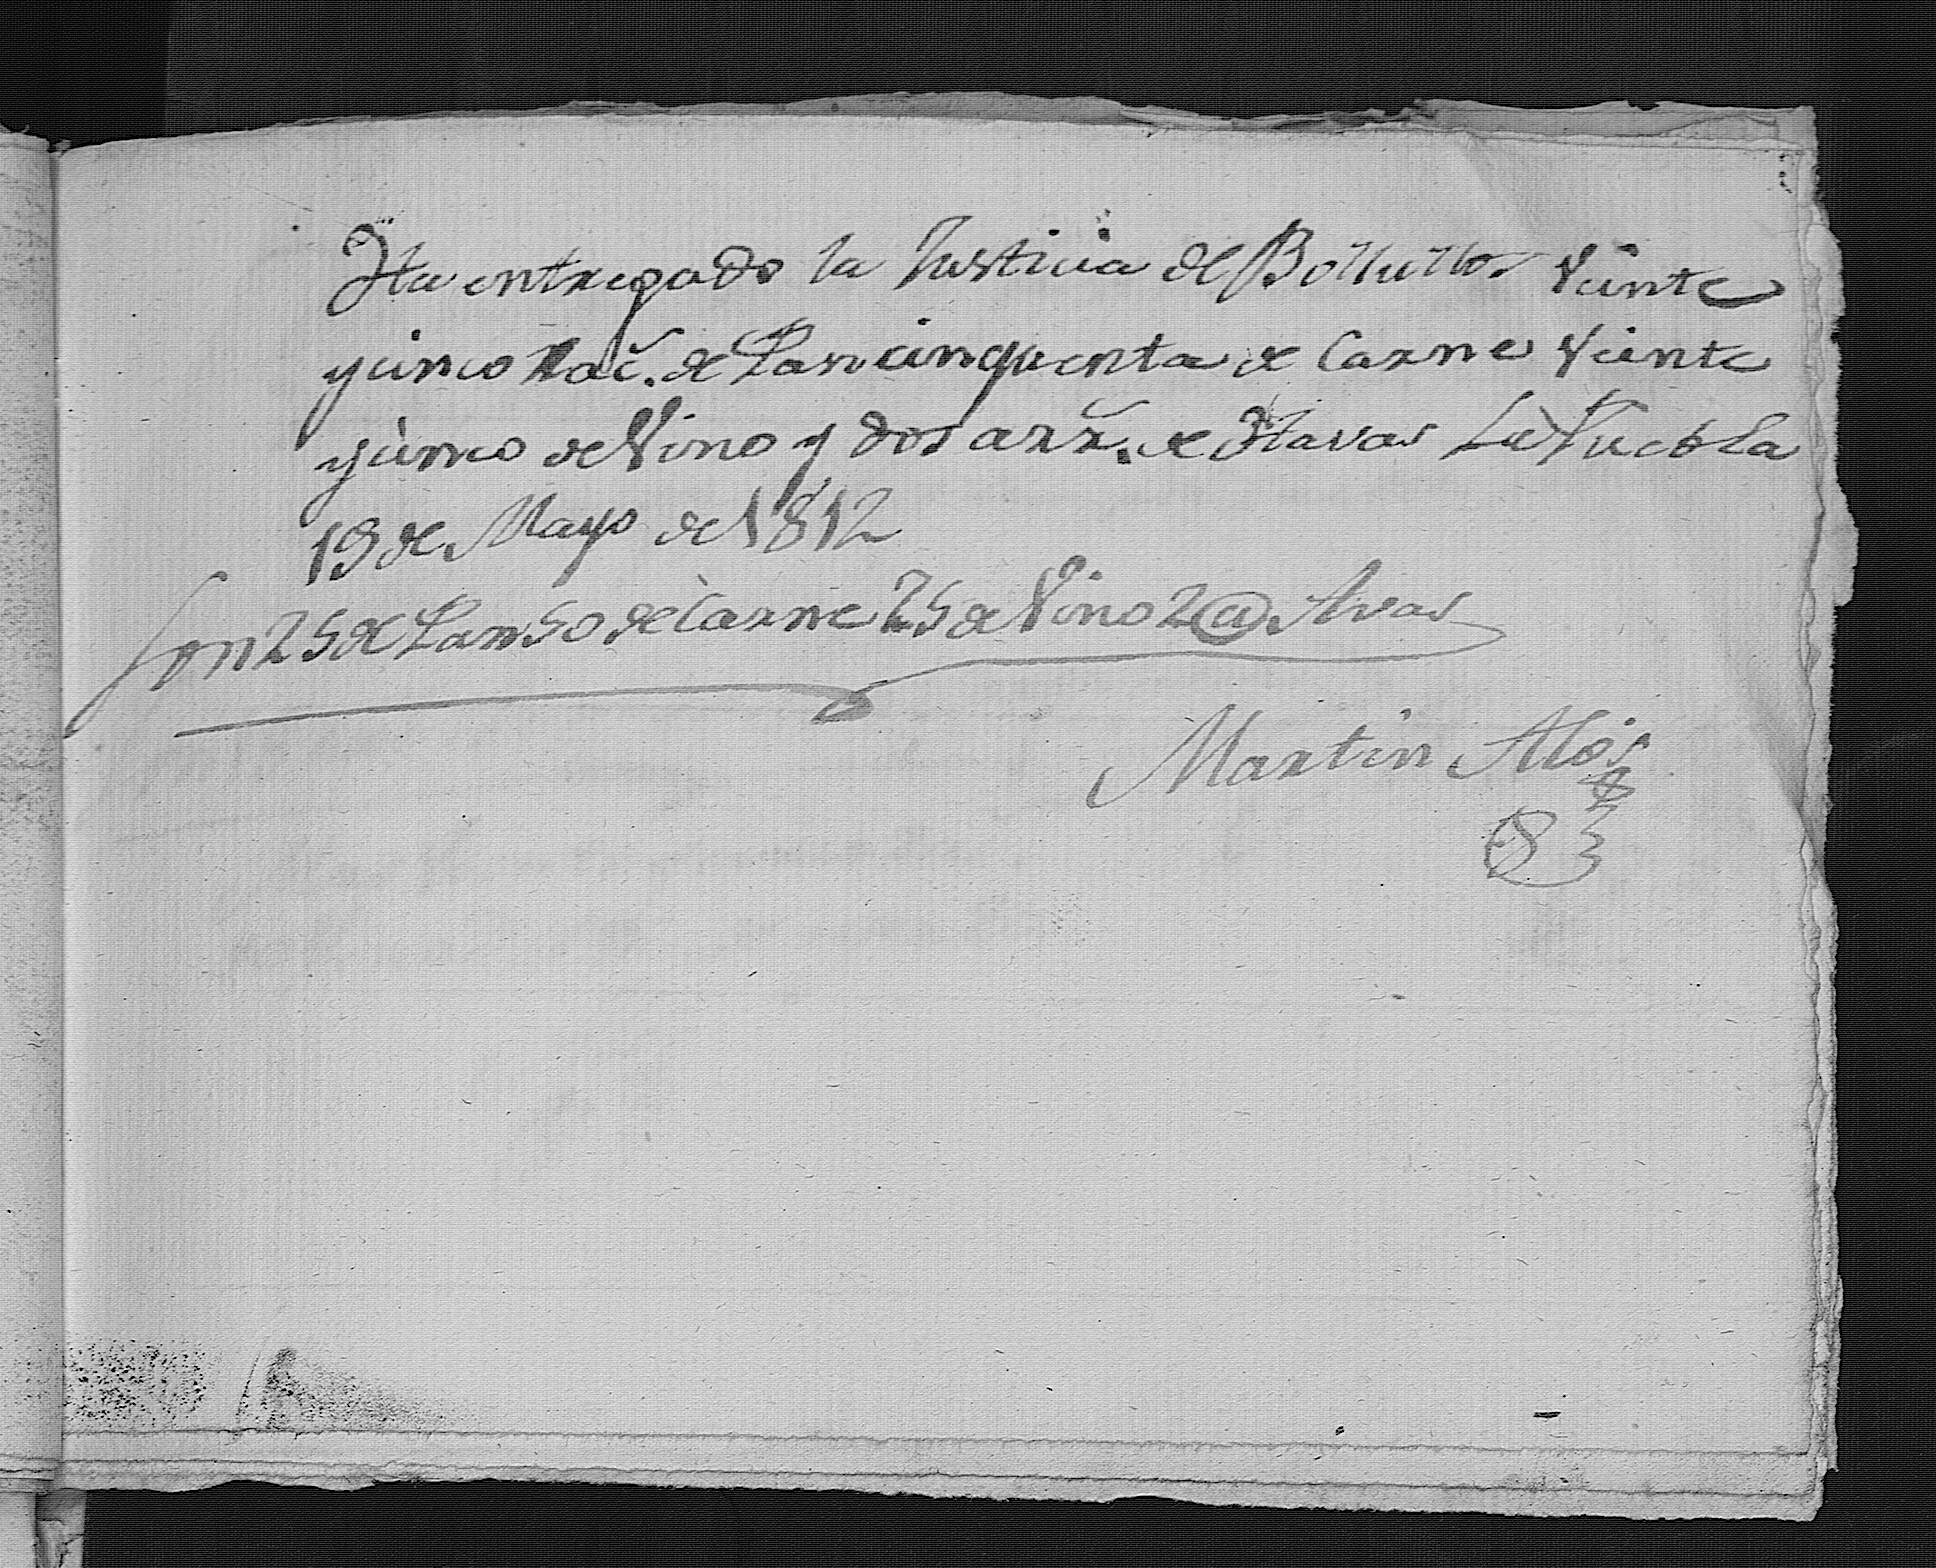 Ha entregado la Justicia de Bollullos Veinte
y cinco Rac.s de Pan cinquenta de Carne Veinte
y cinco de Vino y dos arr.s de Havas La Puebla
19 de Mayo de 1812
Son 25 de Pan 50 de Carne 25 de Vino 2 @ Avas
Martin Alós